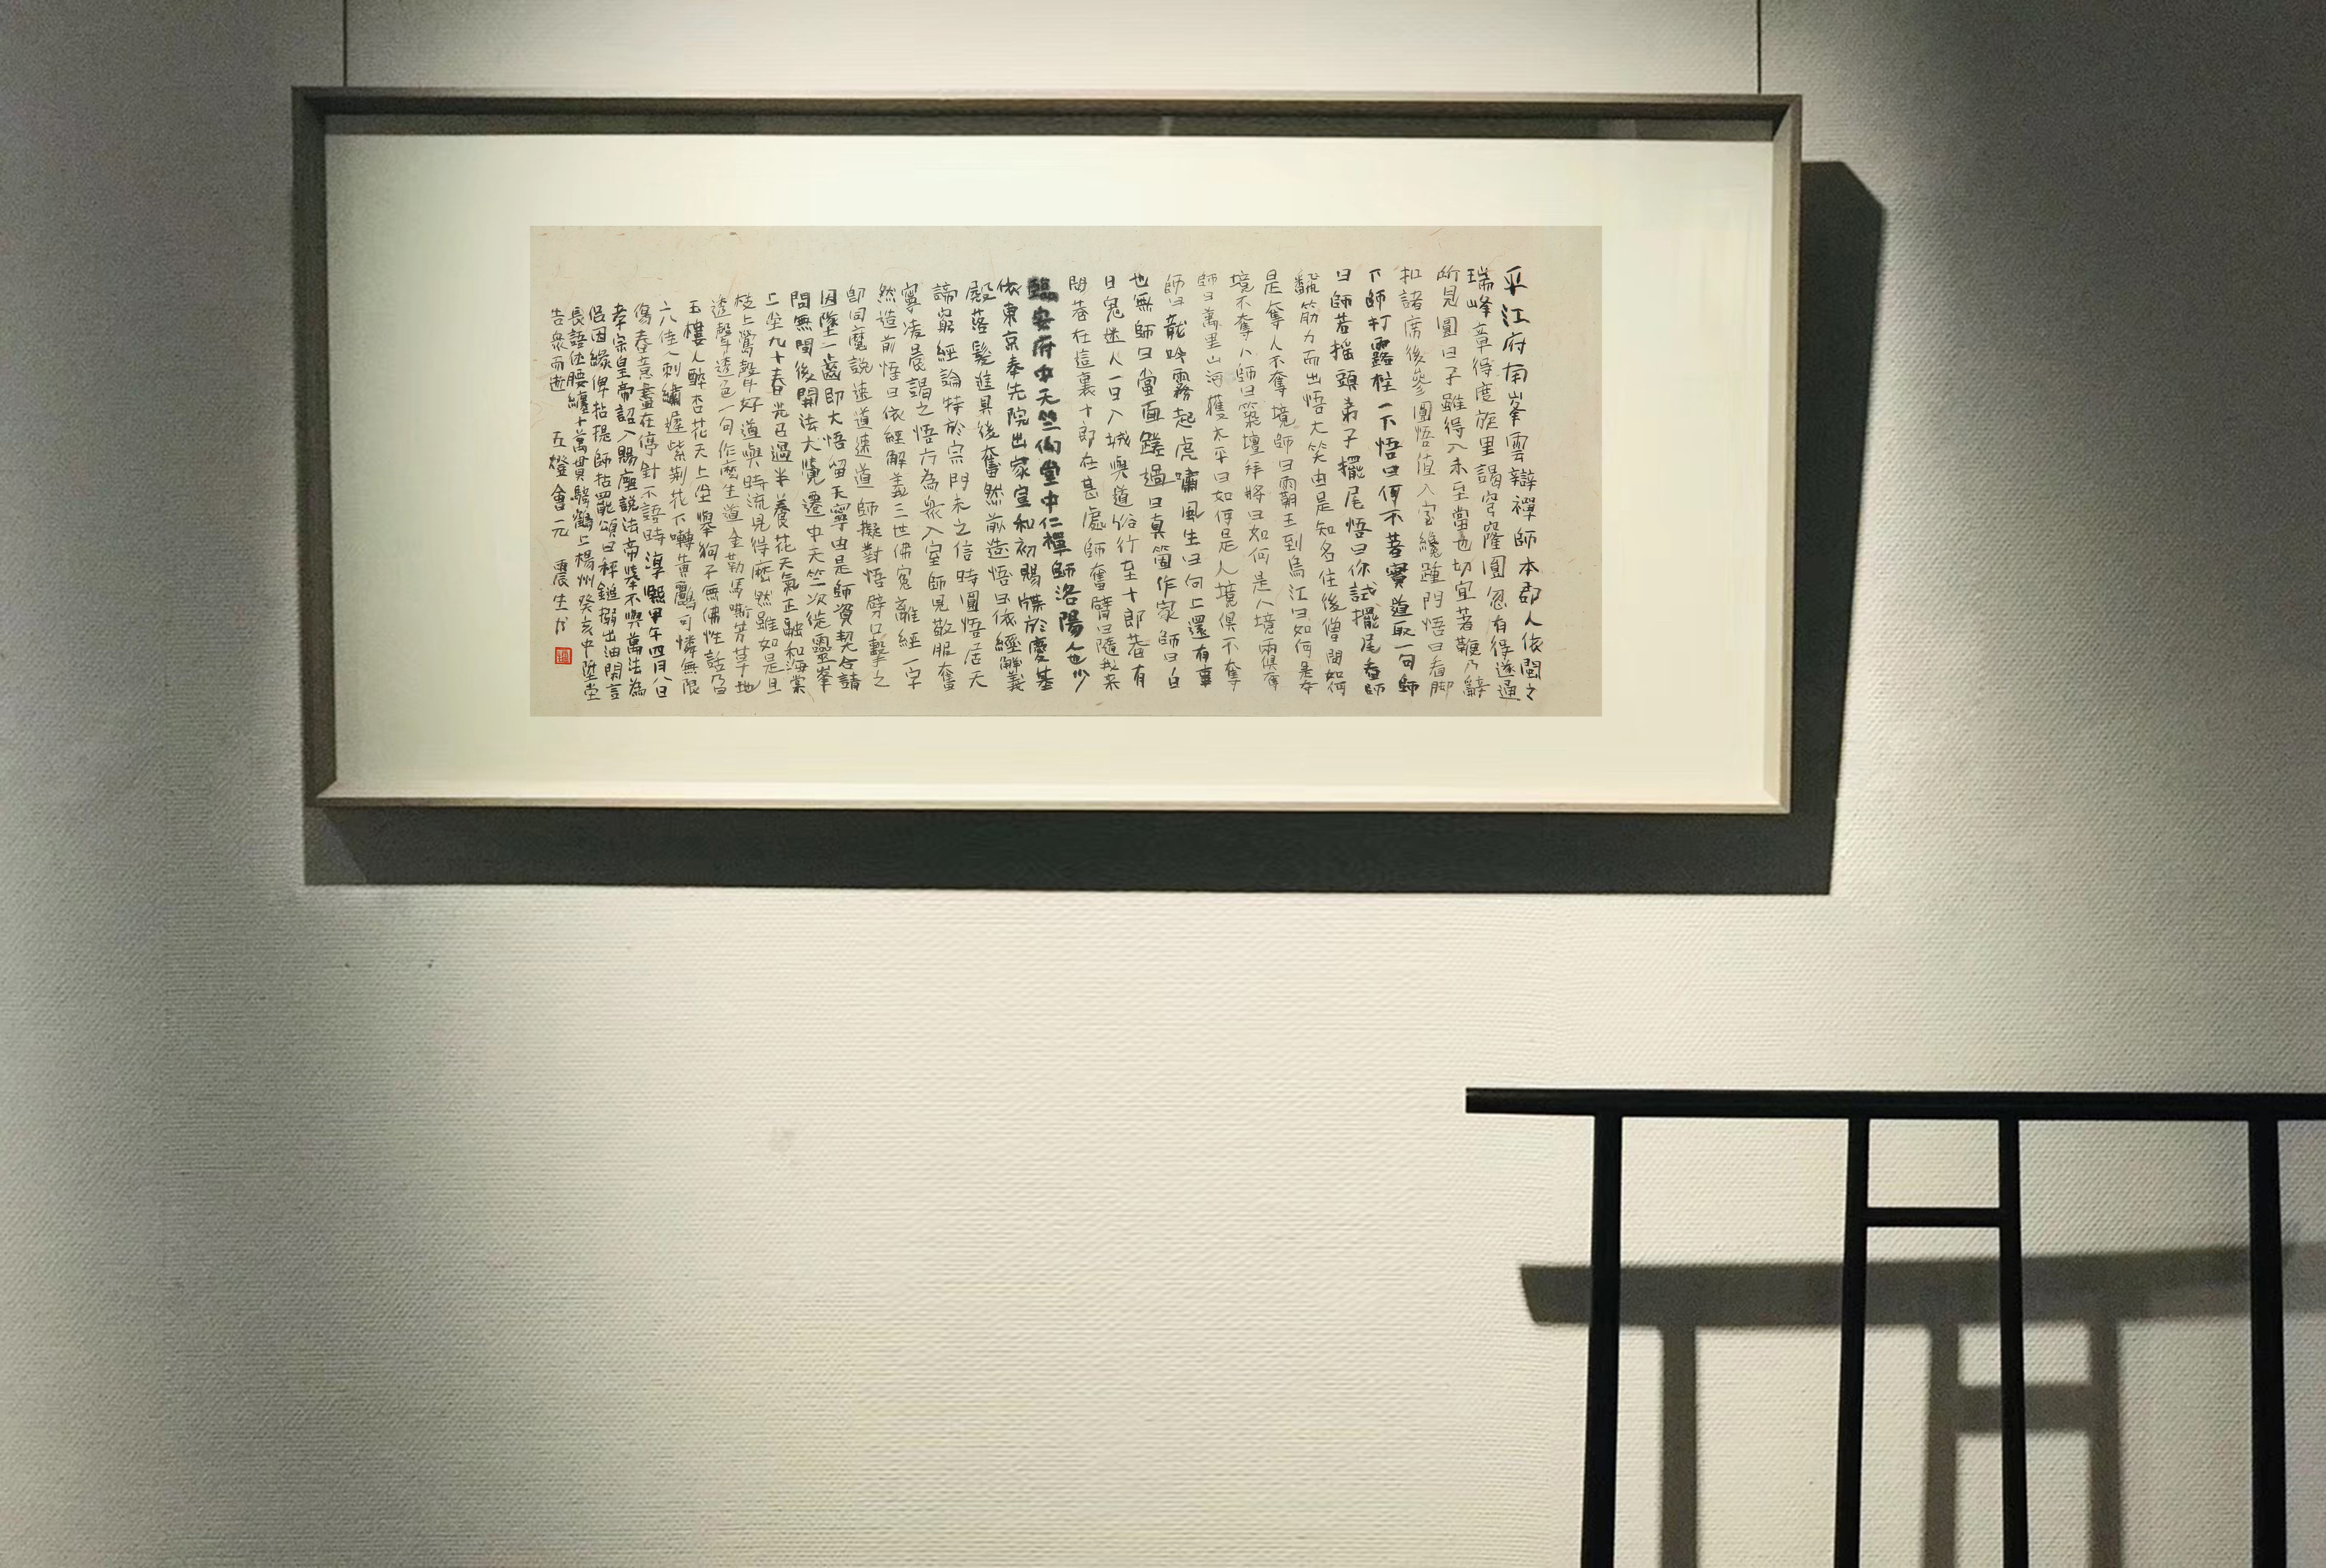 平江府南峯雲辯禪師本郡人依閩之
瑞峰章得度旋里謁穹窿圓忽有得遂通
所見圓曰子雖得入未至當也切宜著鞭乃辭
扣諸席後參圜悟值入室纔踵門悟曰看脚
下師打露柱一下悟曰何不著實道取一句師
曰師若摇頭弟子擺尾悟曰你試擺尾看師
翻筋力而出悟大笑由是知名住後僧問如何
是奪人不奪境師曰霸王到烏江曰如何是奪
境不奪人師曰築壇拜將曰如何是人境兩俱奪
師曰萬里山河獲太平曰如何是人境俱不奪
師曰龍吟霧起虎嘯風生曰向上還有事
也無師曰當面蹉過曰真箇作家師曰白
日鬼迷人一日入城與道俗行至十郎巷有
問巷在這裏十郎在甚處師奮臂曰隨我来
臨安府中天竺㑃堂中仁禪師洛陽人也少
依東京奉先院出家宣和初賜牒於慶基
殿落髮進具後奮然前造悟曰依經解義
諦窮經論特於宗門未之信時圜悟居天
寧凌晨謁之悟方為衆入室師見敬服奮
然造前悟曰依經解義三世佛寃離經一字
即同魔説速道速道師擬對悟劈口擊之
因墜一齒即大悟留天寧由是師資契合請
問無間後開法大覺遷中天竺次徙靈峯
上坐九十春光已過半養花天氣正融和海棠
枝上鶯聲好道與時流見得麽然雖如是且
透聲透色一句作麽生道金勒馬嘶芳草地
玉樓人醉杏花天上坐舉狗子無佛性話乃曰
二八佳人刺繡遲紫荆花下囀黄鸝可憐無限
傷春意盡在停針不語時淳熙甲午四月八日
孝宗皇帝詔入賜座説法帝舉不與萬法為
侣因緣俾拈提師拈罷頌曰秤鎚搦出油閑言
長語休腰纏十萬貫騎鶴上楊州癸亥中陞堂
告衆而逝 五燈會元 震生书